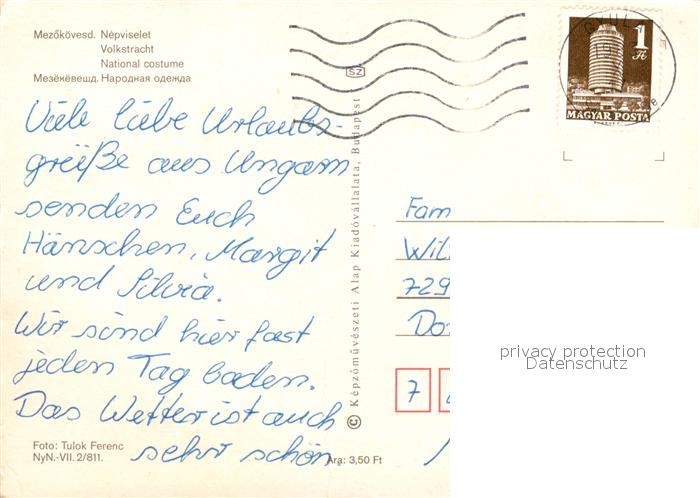 Mezőkövesd. Népviselet
Volkstracht
National costume
Мезёкёвешд. Народная одежда
SZ
1
Ft
MAGYAR POSTA
Viele liebe Urlaubs-
grüße aus Ungarn
senden Euch
Hänschen, Margit
und Silvia.
Wir sind hier fast
jeden Tag baden.
Das Wetter ist auch
sehr schön.
Foto: Tulok Ferenc
NyN.-VII. 2/811.
Ára: 3,50 Ft
© Képzőművészeti Alap Kiadóvállalata, Budapest
Fam
Wil
729
Do
7
privacy protection
Datenschutz